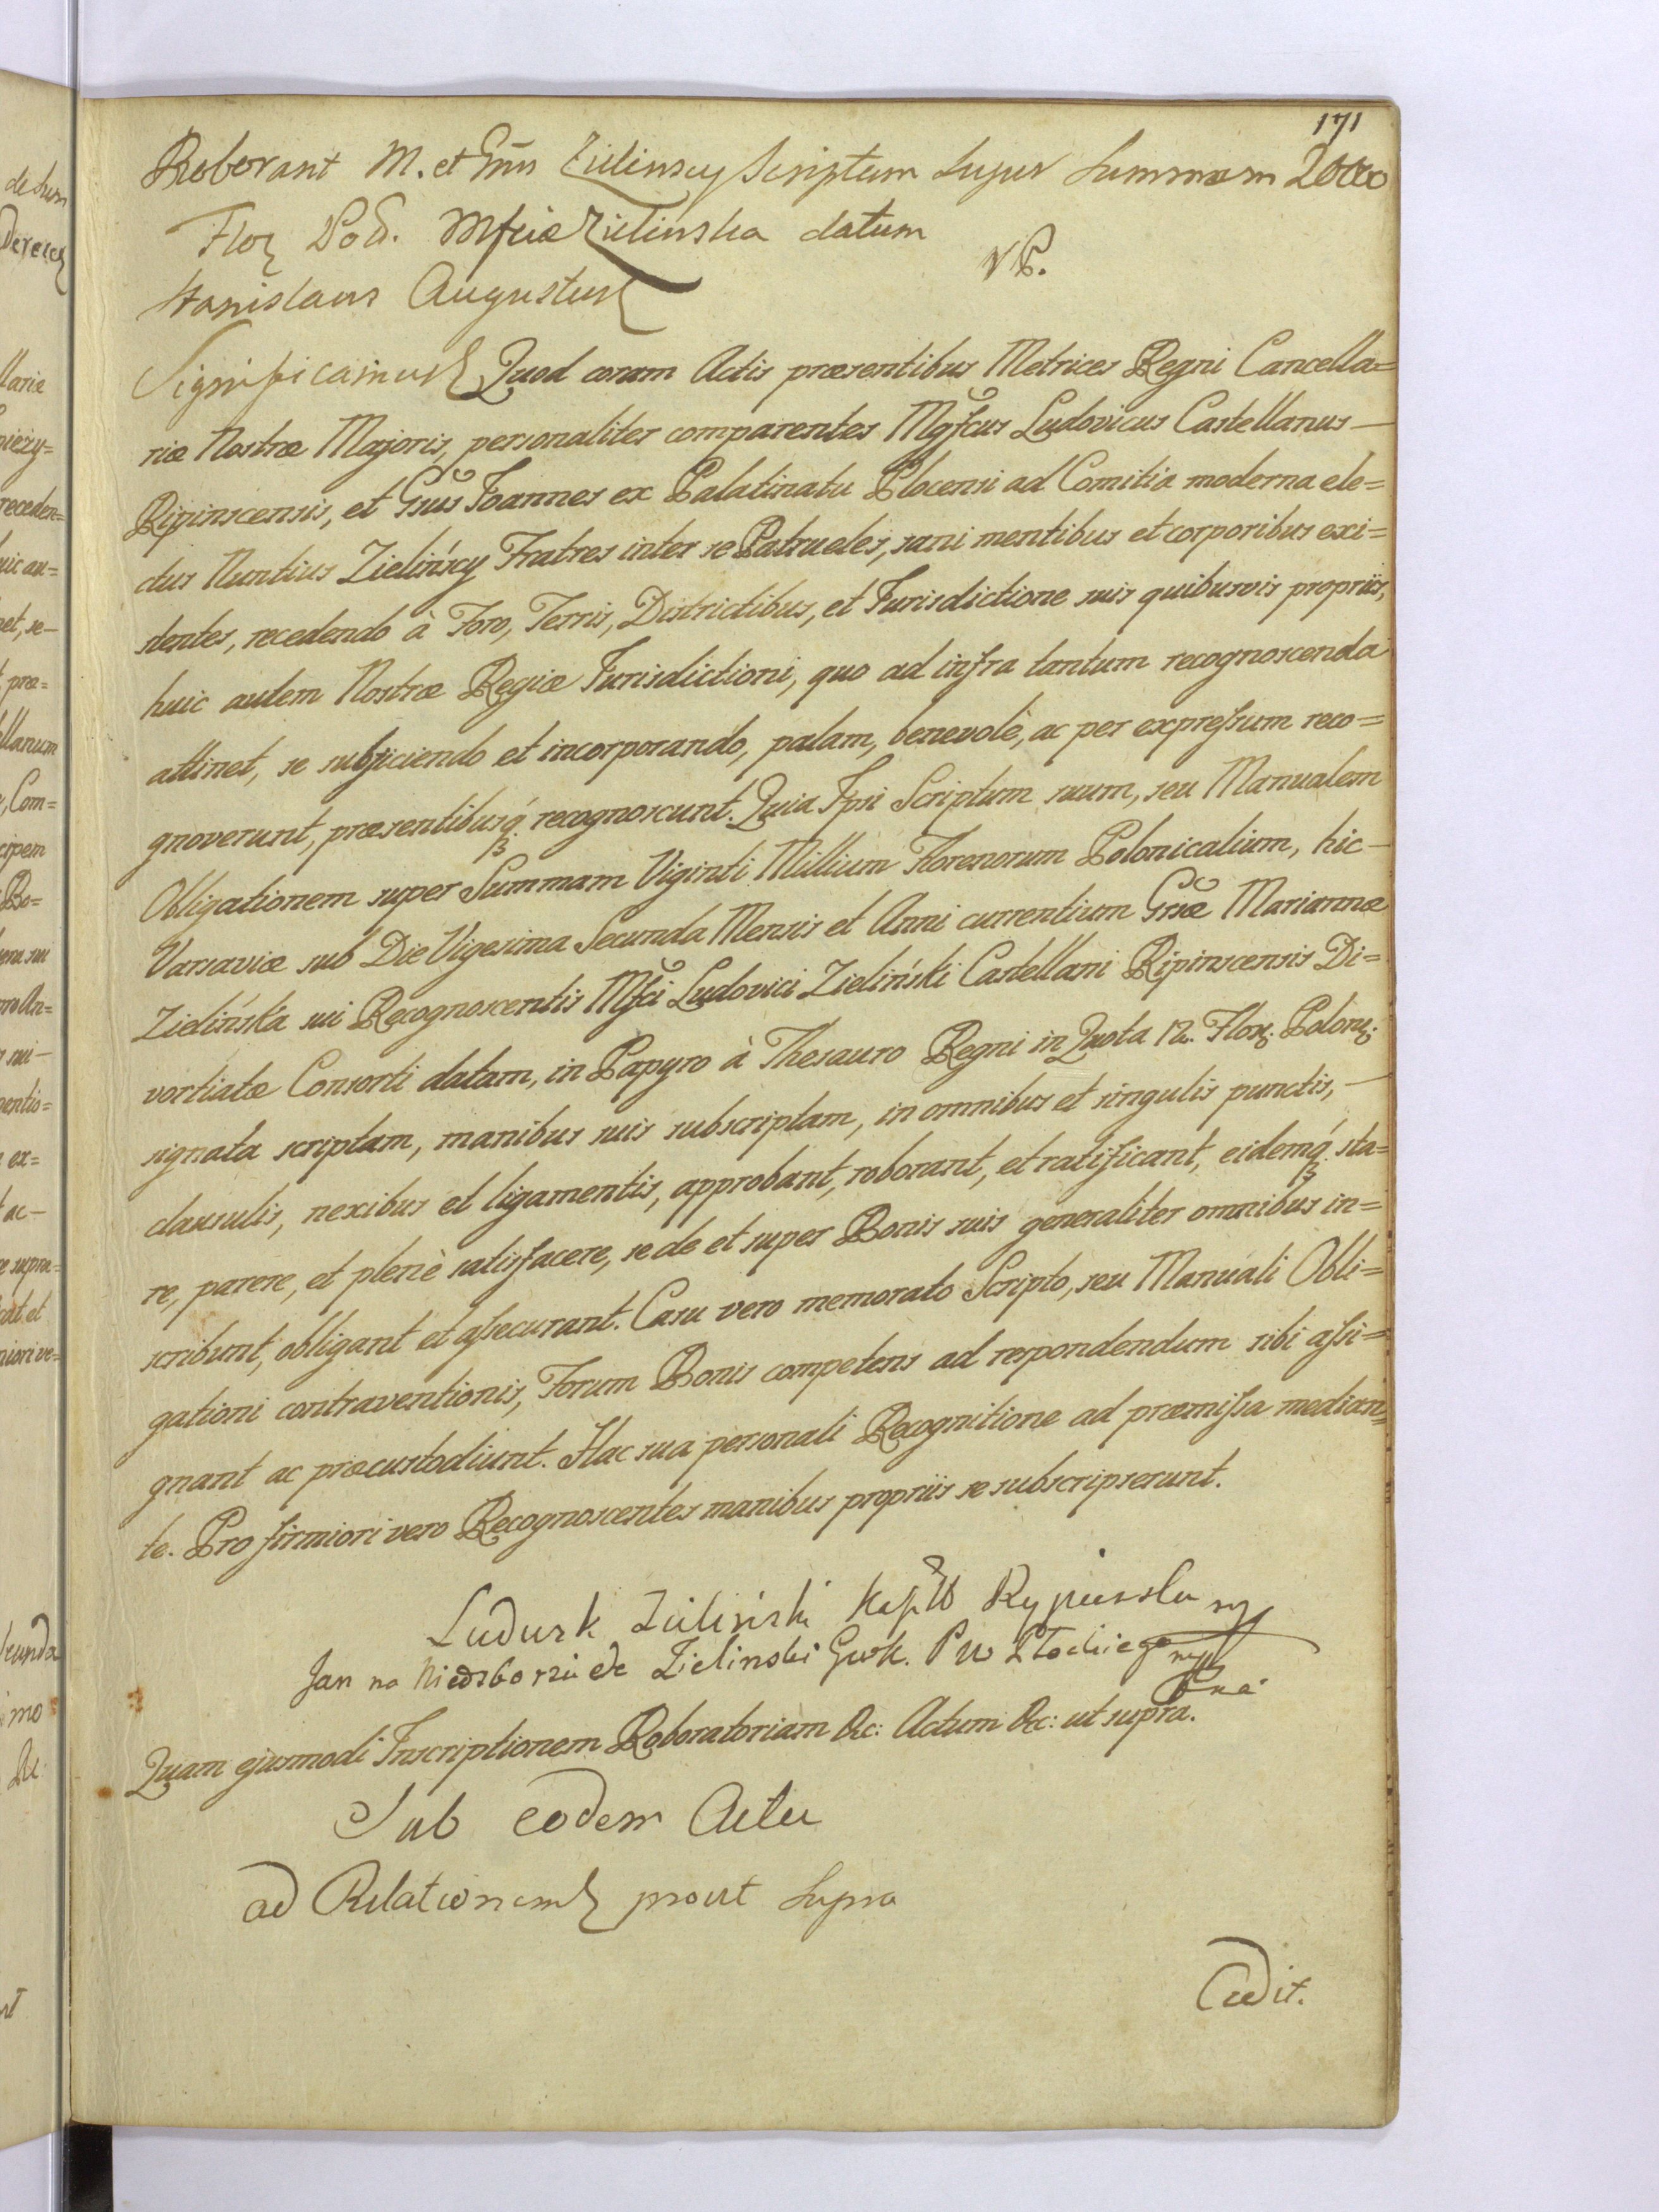 171
Roborant M. et Gnus Zielinscy Scriptum Super Summam 20000
Flor Pol. Mficæ Zielinska datum
VP.
Stanislaus Augustus
Significamus Quod coram Actis præsentibus Metrices Regni Cancella=
riæ Nostræ Majoris, personaliter comparentes Mgfcus Ludovicus Castellanus —
Ripinscensis, et Gsus Joannes ex Palatinatu Plocensi ad Comitia moderna ele=
ctus Nuntius Zielińscy Fratres inter se Patrueles, sani mentibus et corporibus exi=
stentes, recedendo à Foro, Terris, Districtibus, et Jurisdictione suis quibusvis propriis,
huic autem Nostræ Regiæ Jurisdictioni, quo ad infra tantum recognoscenda
attinet, se subjiciendo et incorporando, palam, benevolè, ac per expressum reco=
gnoverunt, præsentibusq́ recognoscunt. Quia Ipsi Scriptum suum, seu Manualem
Obligationem super Summam Viginti Millium Florenorum Polonicalium, hic —
Varsaviæ sub Die Vigesima Secunda Mensis et Anni currentium Gsæ Mariannæ
Zielińska sui Recognoscentis Mfci Ludovici Zieliński Castellani Ripinscensis Di=
vortiatæ Consorti datam, in Papyro à Thesauro Regni in Quota 12. Flor: Polon:
signata scriptam, manibus suis subscriptam, in omnibus et singulis punctis, —
clausulis, nexibus et ligamentis, approbant, roborant, et ratificant, eidemq́ sta=
re, parere, et plenè satisfacere, se de et super Bonis suis generaliter omnibus in=
scribunt, obligant et assecurant. Casu vero memorato Scripto, seu Manuali Obli=
gationi contraventionis, Forum Bonis competens ad respondendum sibi assi=
gnant ac præcustodiunt. Hac sua personali Recognitione ad præmissa median=
te. Pro firmiori vero Recognoscentes manibus propriis se subscripserunt.
Ludwik Zieliński Kasztt Rypiński
Jan na Niedzborzu de Zielinski P W Płockiego
Quam ejusmodi Inscriptionem Roboratoriam &c: Actum &c: ut supra.
Sub eodem Actu
ad Relationem prout Supra